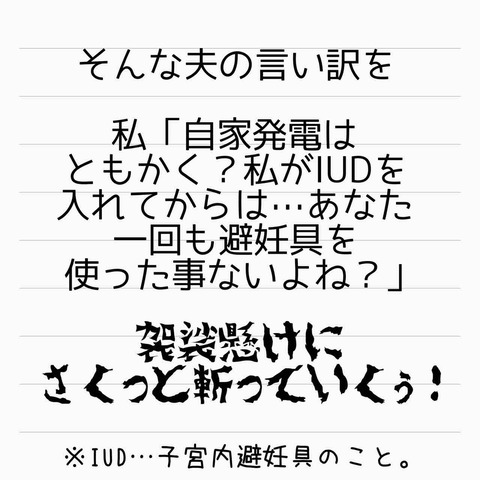 そんな夫の言い訳を
私「自家発電は
ともかく？私がIUDを
入れてからは…あなた
一回も避妊具を
使った事ないよね？」
袈裟懸けに
さくっと斬っていくぅ！
※IUD…子宮内避妊具のこと。